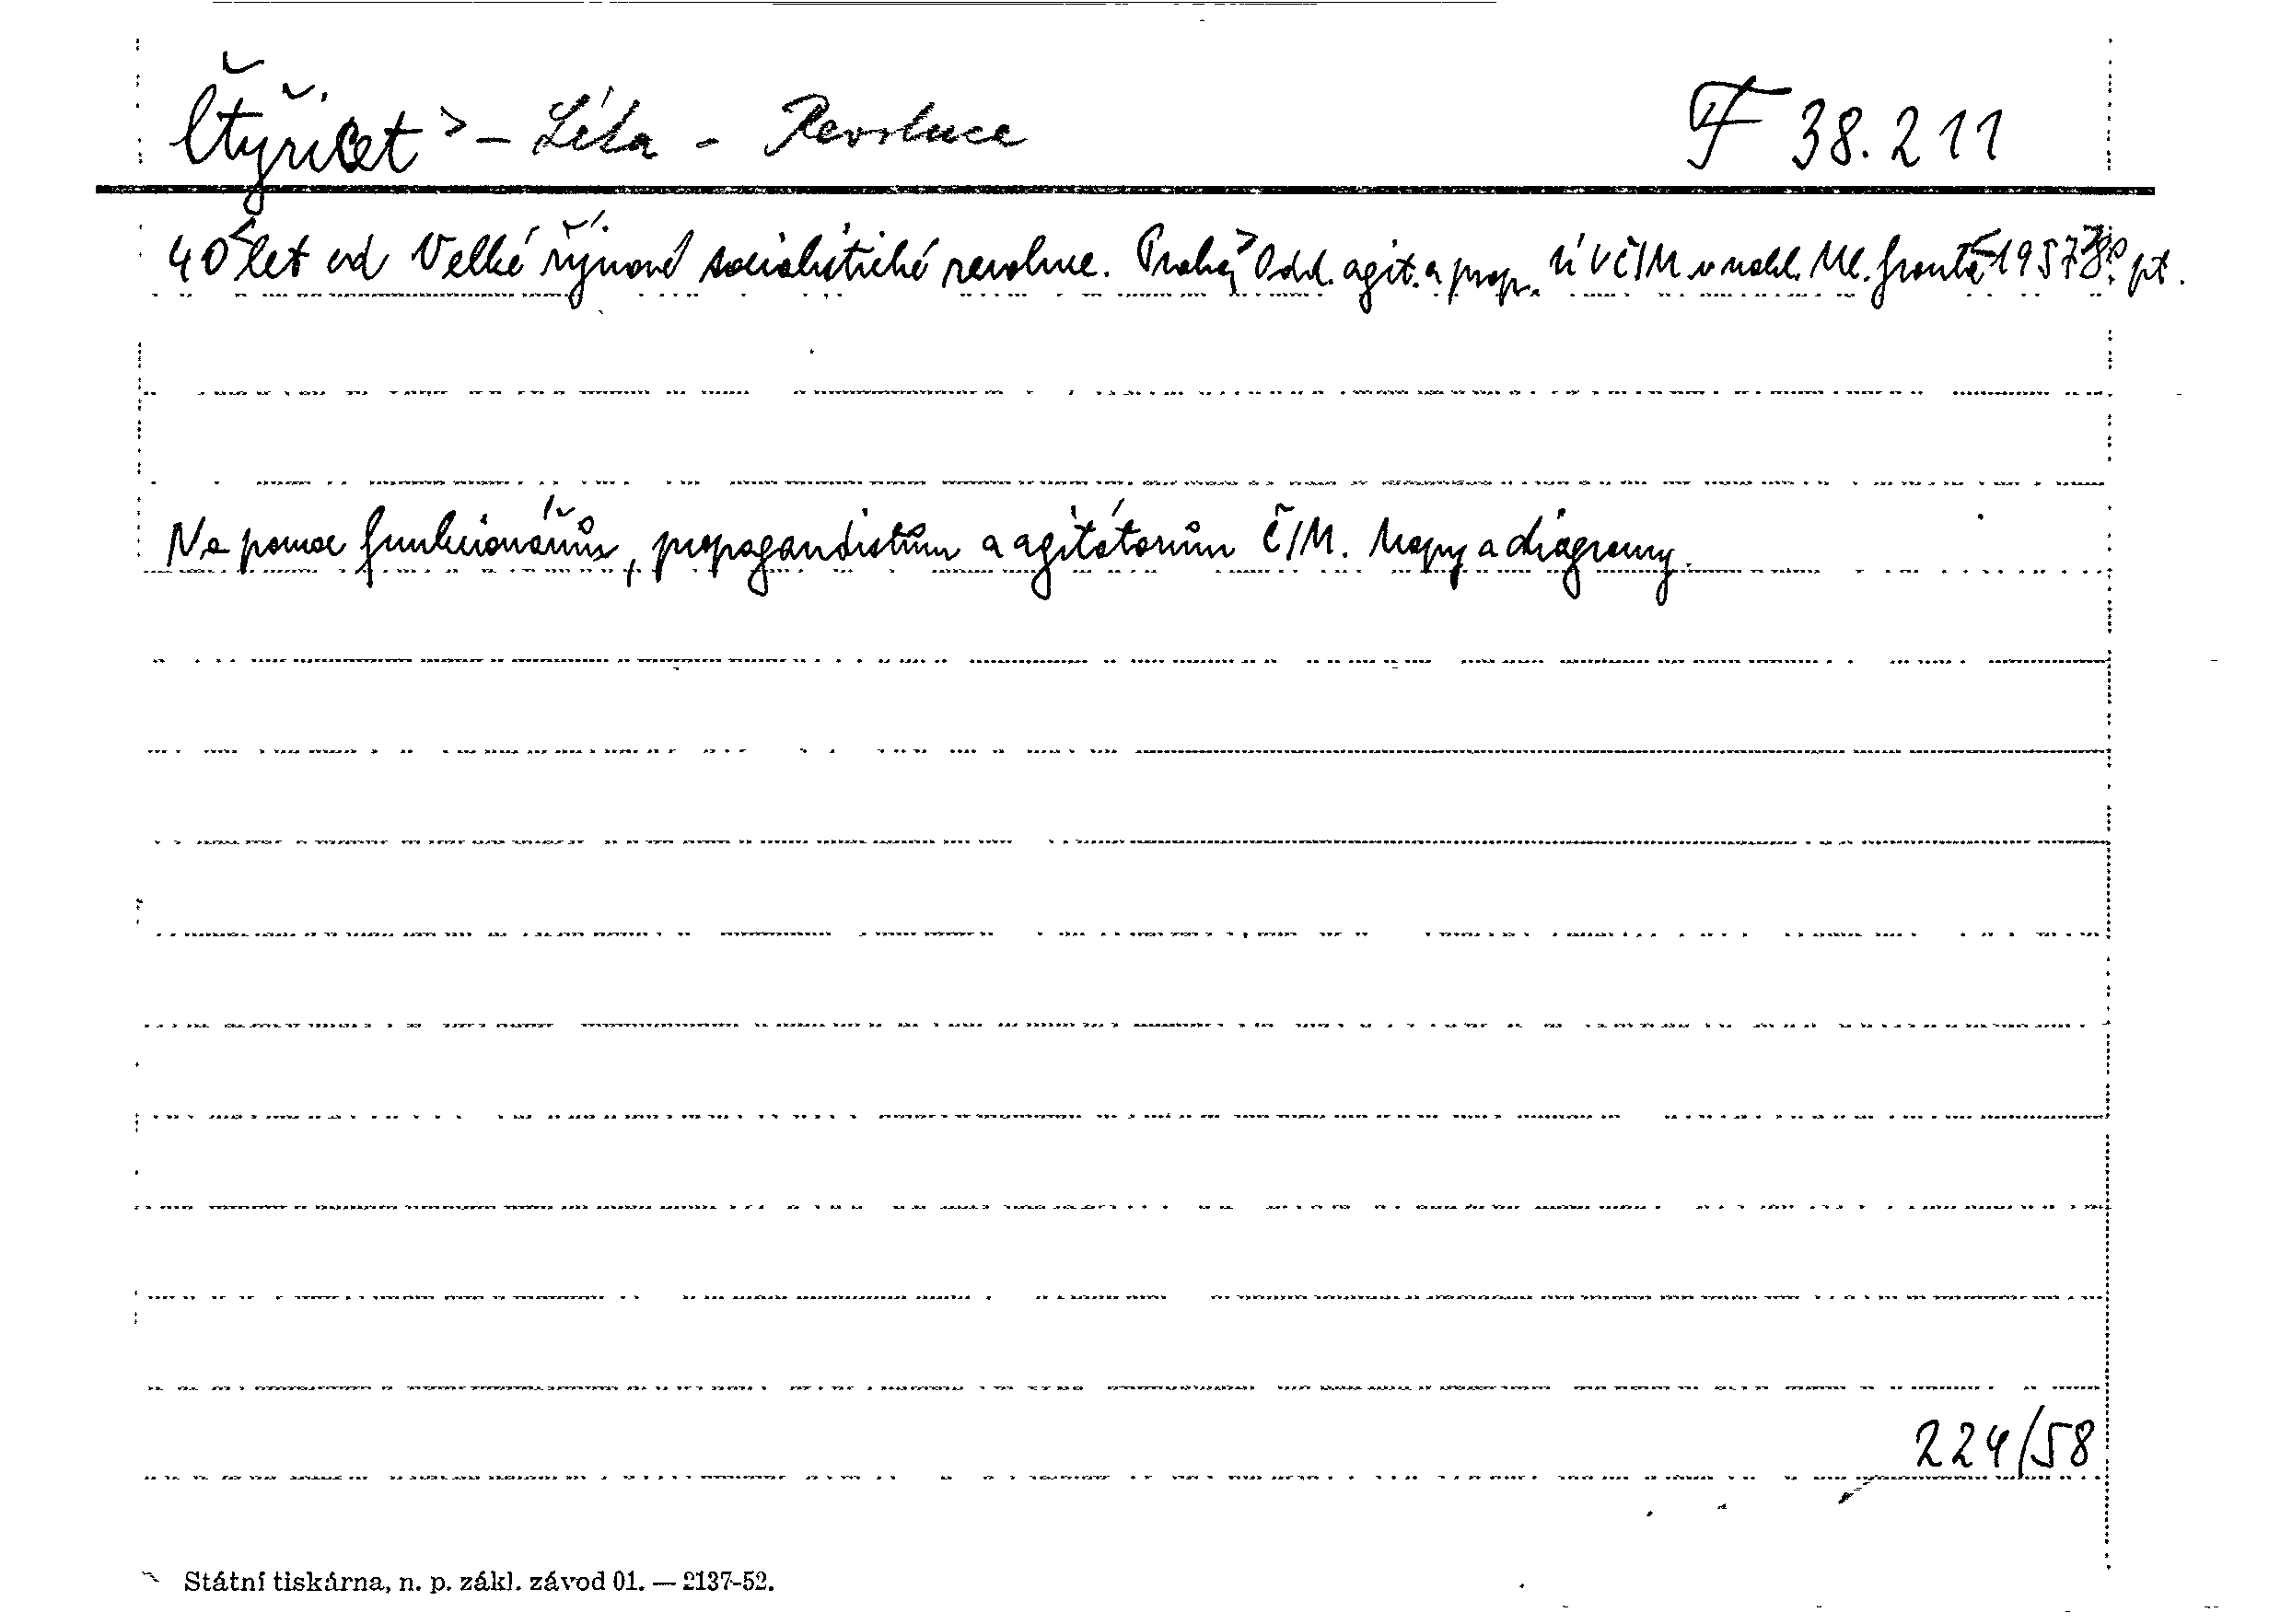 Čtyřicet > - Léta - Revoluce F 38.211
40 let od Velké říjnové socialistické revoluce. Praha, Odd. agit. a prop. ÚV ČSM v nakl. Ml. fronta 1957 8° pt.
Na pomoc funkcionářům, propagandistům a agitátorům ČSM. Mapy a diagramy.
224/58
Státní tiskárna, n. p. zákl. závod 01. — 2137-52.